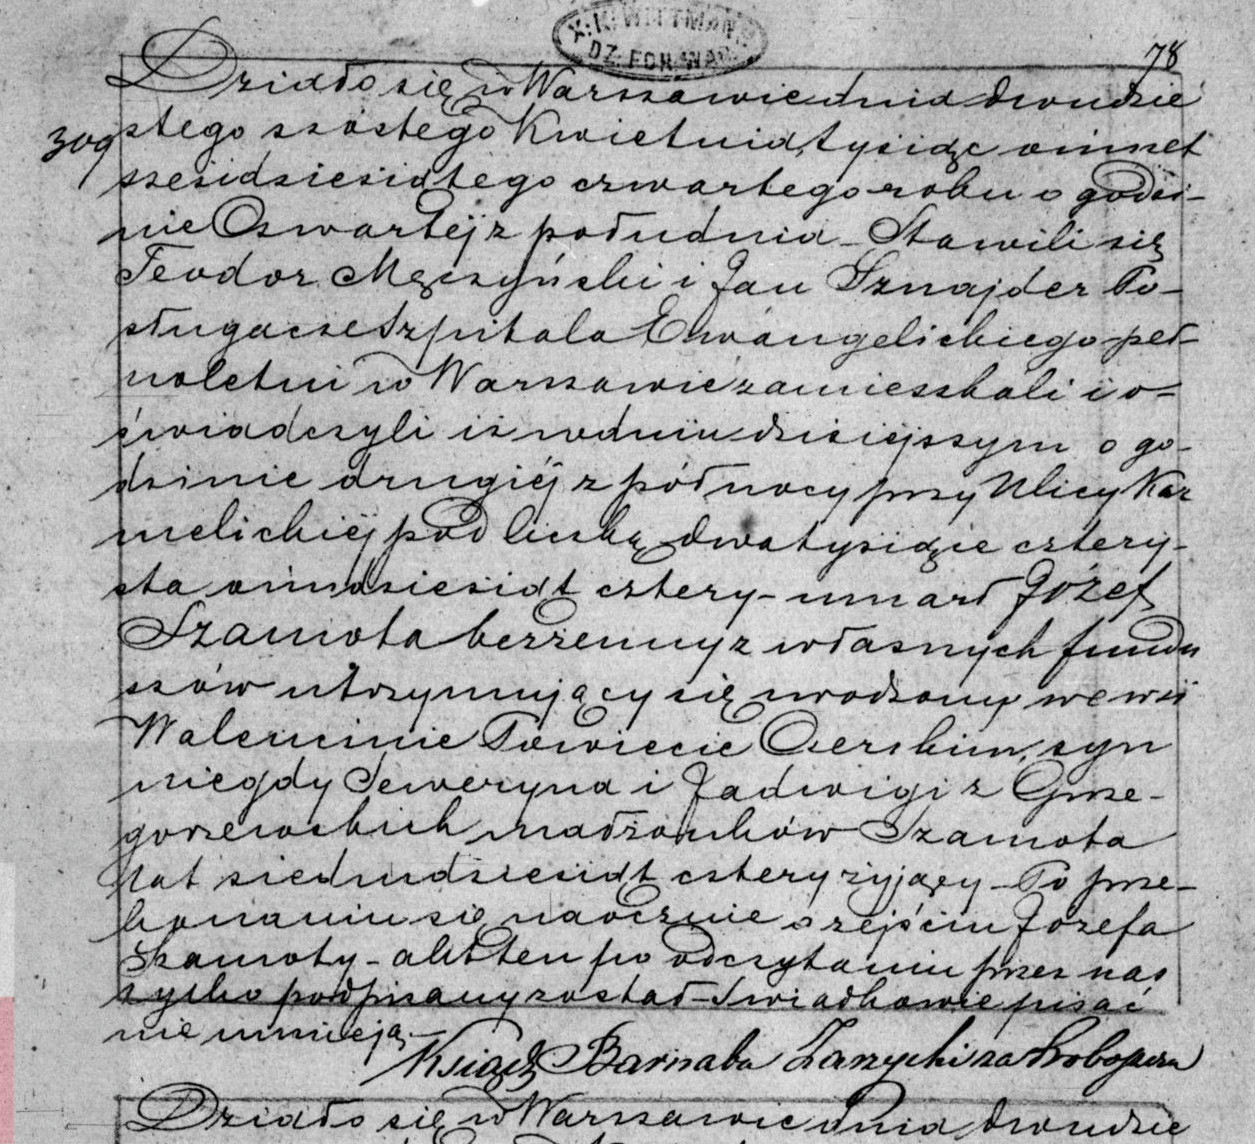 X. K. WITTMAN
DZ. FOR. WAR.
78
Działo się w Warszawie dnia dwudzie
309 stego szóstego Kwietnia, tysiąc ośmset
sześćdziesiątego czwartego roku o godzi-
nie Czwartéj z południa – Stawili się
Teodor Męczyński i Jan Sznajder Po-
sługacze Szpitala Ewangelickiego peł-
noletni w Warszawie zamieszkali i o-
świadczyli iż w dniu dzisiejszym o go-
dzinie drugiéj z północy przy Ulicy Kar
melickiéj pod liczbą dwatysiące cztery-
sta ośmdziesiąt cztery – umarł Józef
Szamota bezżenny z własnych fundu
szów utrzymujący się urodzony we wsi
Walencinie Powiecie Czerskim, syn
niegdy Seweryna i Jadwigi z Grze-
gorzewskich małżonków Szamota
lat siedmdziesiąt cztery żyjący – Po prze-
konaniu się naocznie o zejściu Józefa
Szamoty – akt ten po odczytaniu przez nas
tylko podpisany został – Świadkowie pisać
nie umieją. –
Ksiądz Barnaba Zarzycki za Proboszcza
Działo się w Warszawie dnia dwudzie